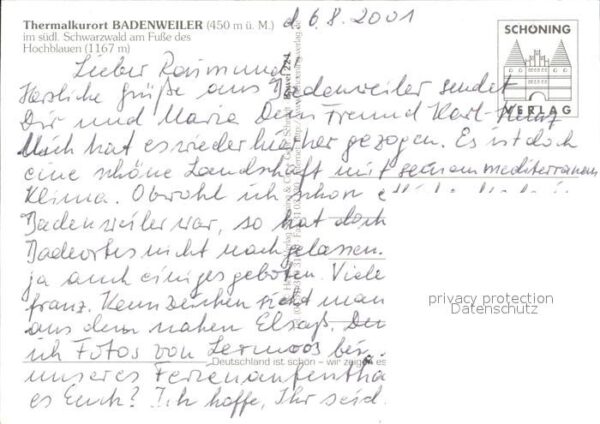 Thermalkurort BADENWEILER (450 m ü. M.)
im südl. Schwarzwald am Fuße des
Hochblauen (1167 m)
d. 6.8.2001
SCHÖNING
VERLAG
Lieber Raimund!
Herzliche Grüße aus Badenweiler sendet
Dir und Maria Dein Freund Karl-Heinz
Mich hat es wieder hierher gezogen. Es ist doch
eine schöne Landschaft mit seinem mediterranen
Klima. Obwohl ich schon
Badenweiler war, so hat doch
Badeortes nicht nachgelassen.
ja auch einiges geboten. Viele
franz. Kennzeichen sieht man
aus dem nahen Elsaß.
ich Fotos von Lermoos bei.
unseres Ferienaufentha
es Euch? Ich hoffe, Ihr seid
Deutschland ist schön – wir zeigen es
privacy protection
Datenschutz